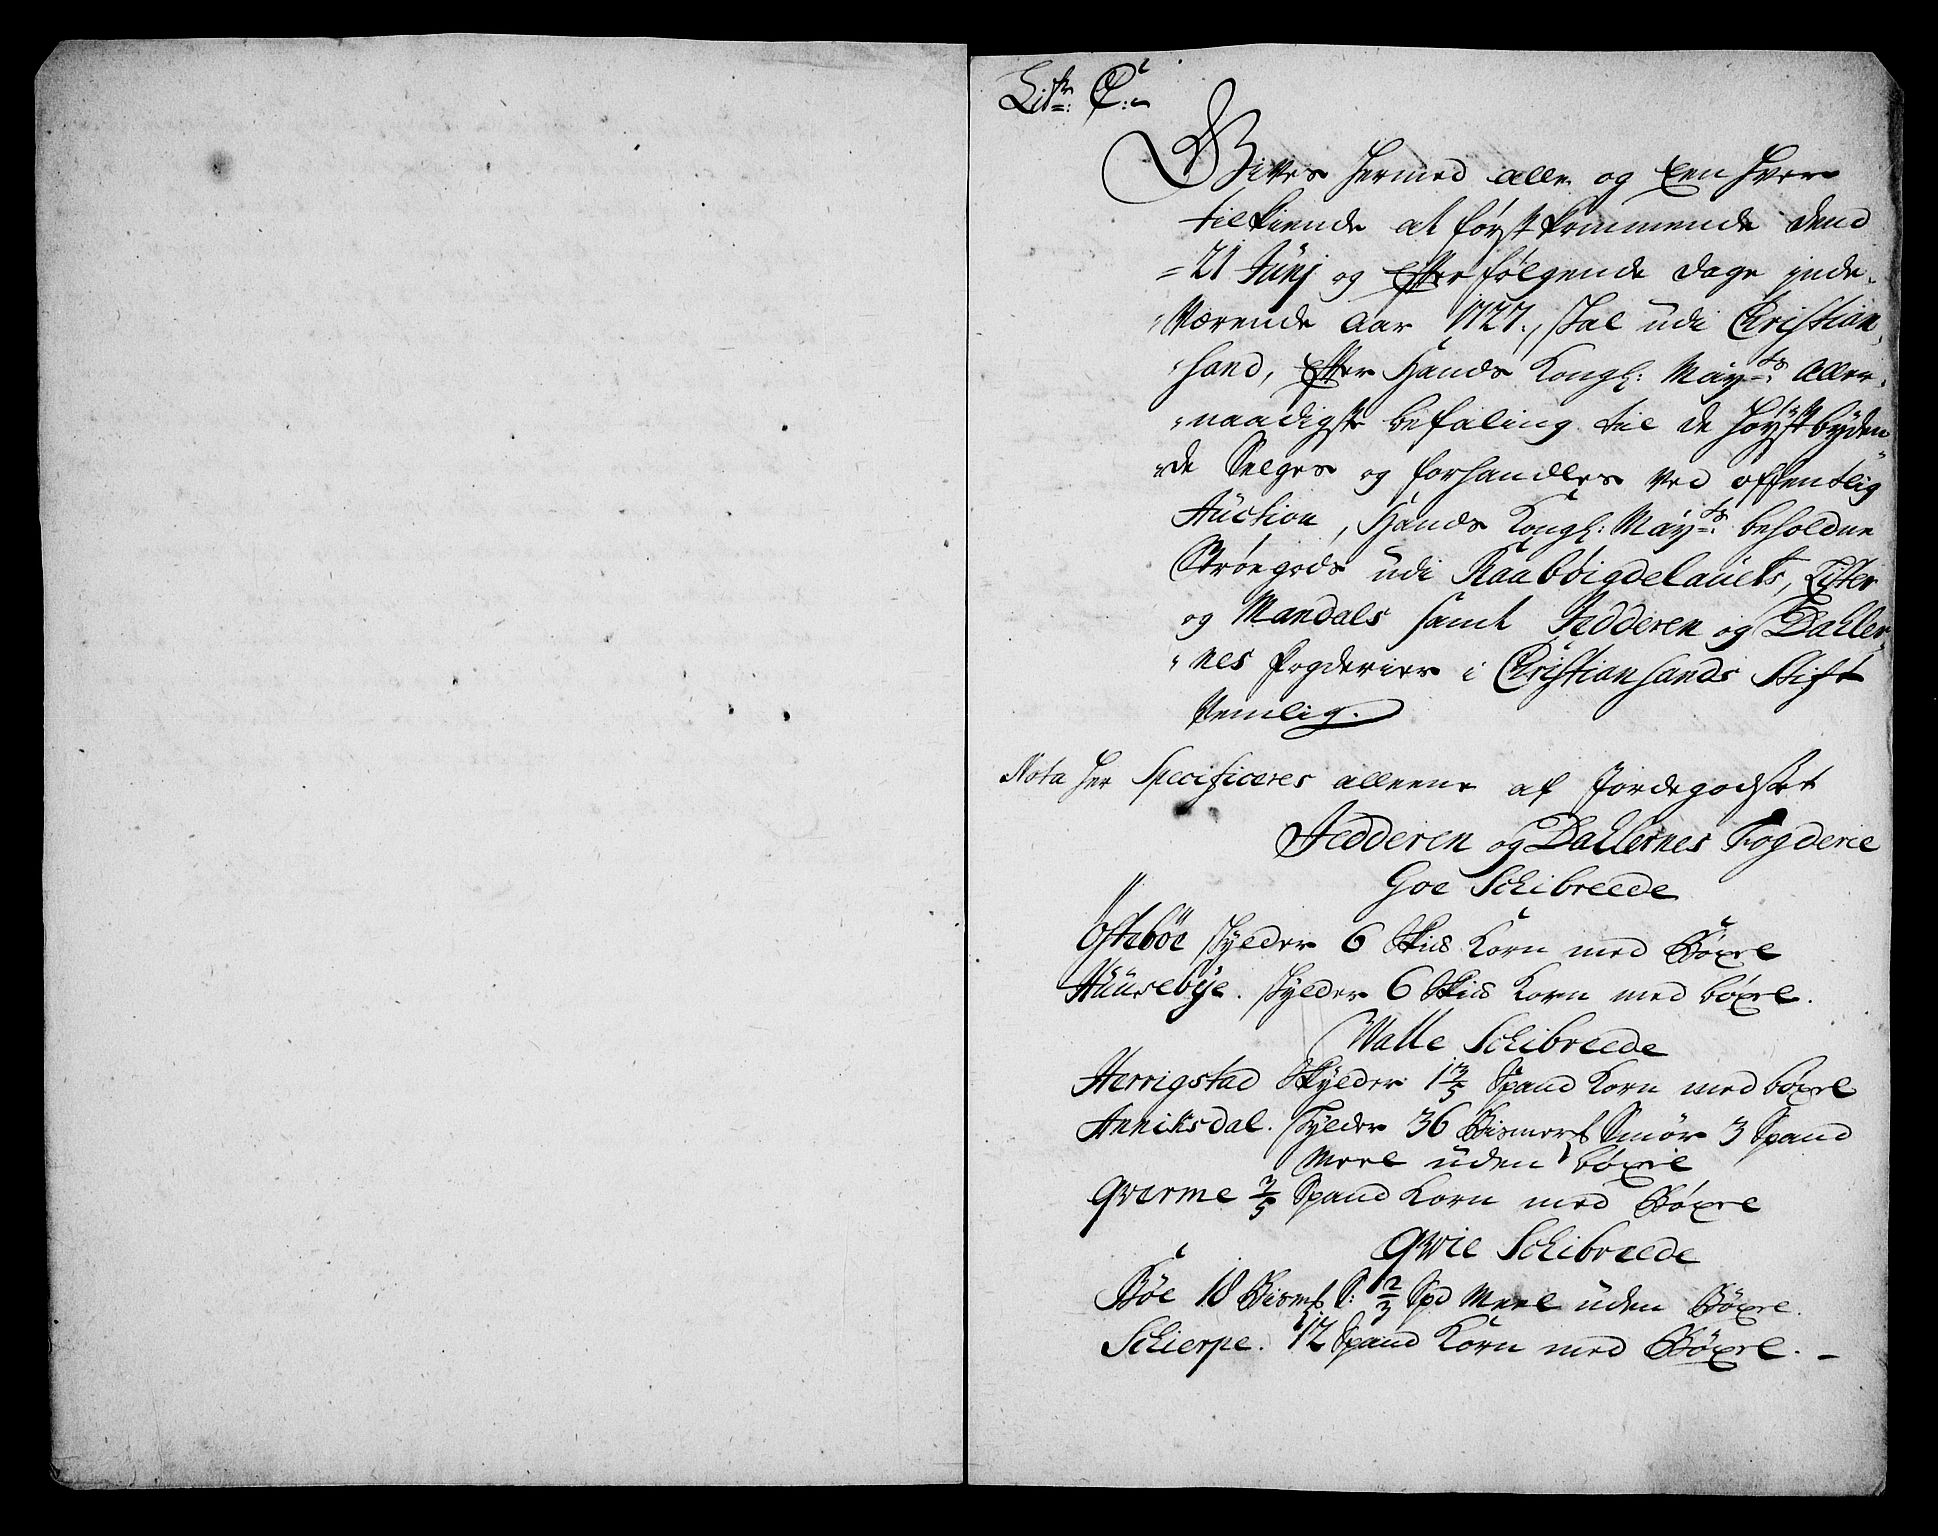 Litr: C:
Gives hermed alle og Een hver
tilkiende at først kommende dend
21 Junj og Efter følgende dage inde-
værende Aar 1727., skal udi Christian-
sand, Efter Hands Kongl: Mayts: Aller-
naadigste befaling til de høystbyden-
de Selges og forhandles ved offentlig
Auction, Hands Kongl: Mayts: beholdne
Strøegods udi Raabøigdelauets, Lister
og Mandals samt Jedderen og Dahler-
nes fogderier i Christiansands Stift
Nemlig.
Nota her Specificeres alleene af Jordegodset
Jedderen og Dahlernes Fogderie
Goe Schibreede
Østebøe skylder 6 Skid Korn med Böxel
Huusebye. skylder 6 Skid Korn med böxel.
Walle Schibreede
Herrigstad Skylder 1 2/5 Spand Korn med böxel
Anniksdal. skylder 36 Bismer℔ Smør 3 Spand
Meel uden böxel
Qverme 2/5 Spand Korn med Böxel
Qvie Schibreede
Bøe 18 Bism℔ S: 12/3 Spd Meel uden Böxel.
Schierpe. 12 Spand Korn med Böxel. -